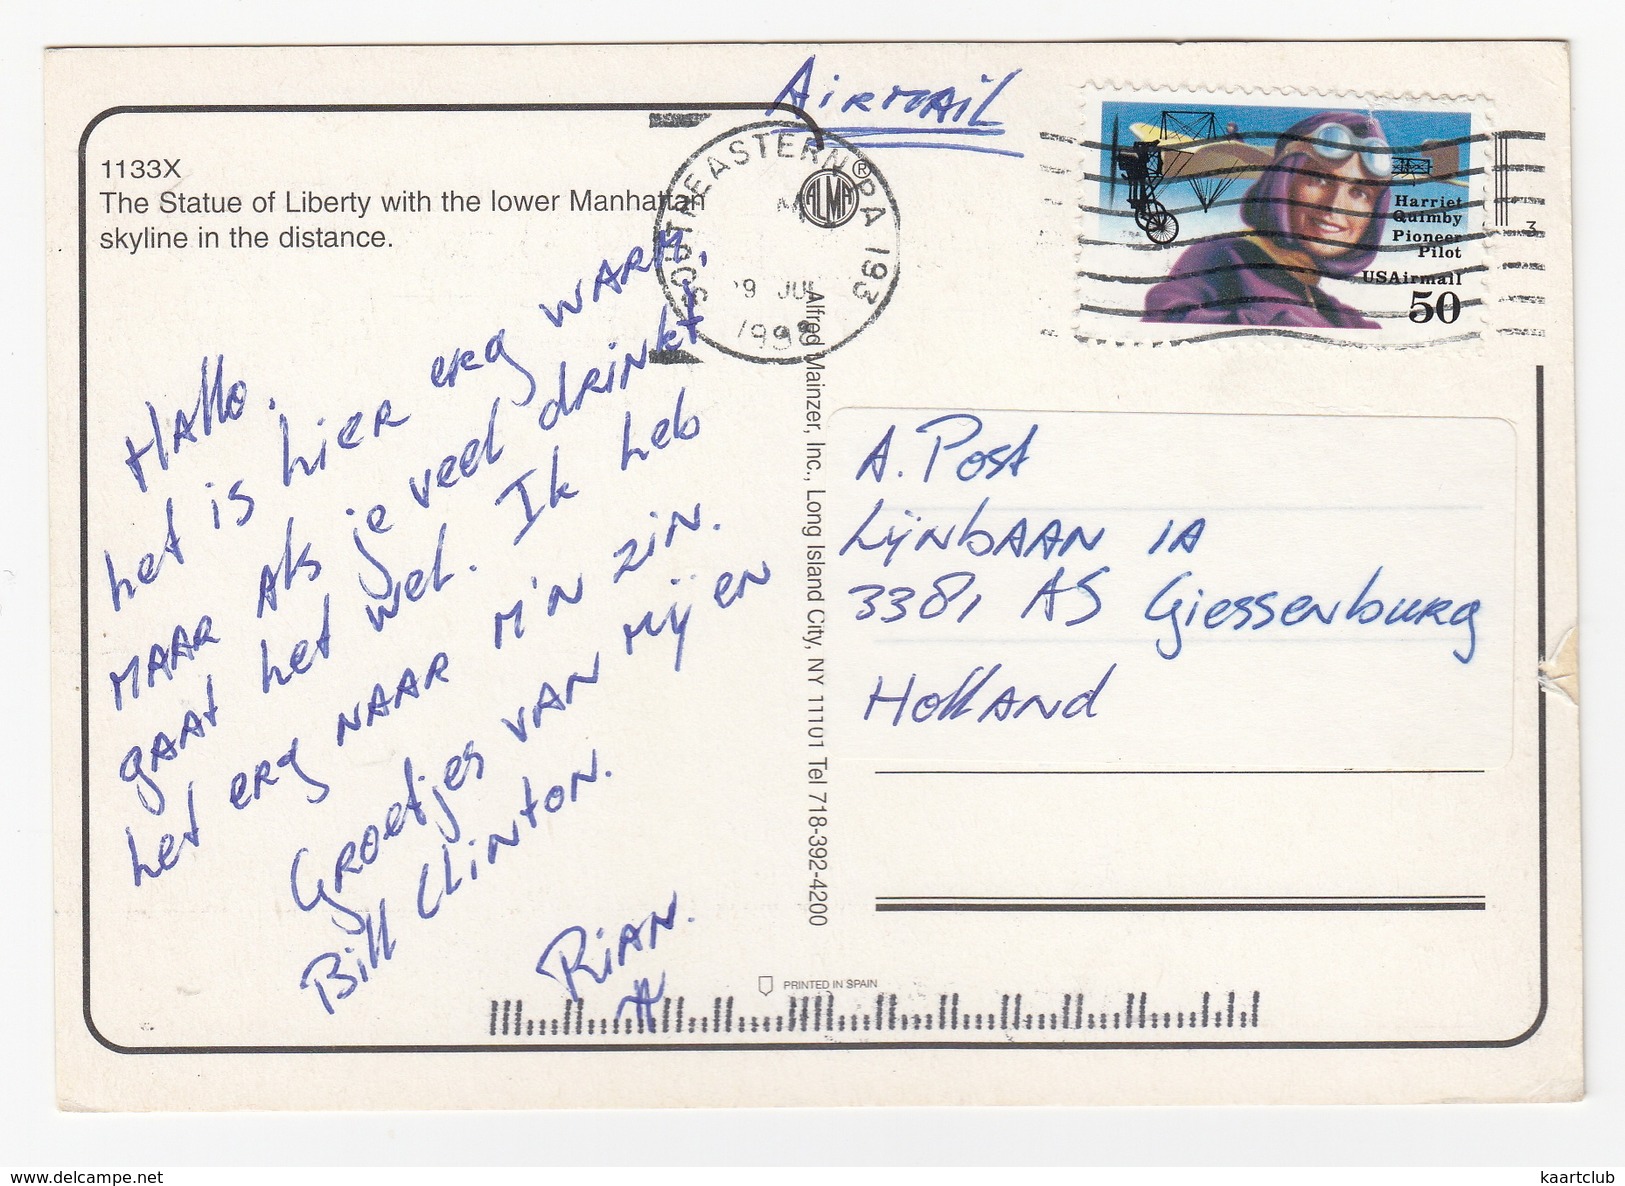 AiRMAiL
1133X
The Statue of Liberty with the lower Manhattan
skyline in the distance.
ALMA®
SOUTHEASTERN PA 193
JUL
1998
Harriet
Quimby
Pioneer
Pilot
USAirmail
50
3
Hallo.
het is hier erg warm,
maar als je veel drinkt
gaat het wel. Ik heb
het erg naar m'n zin.
Groetjes van mij en
Bill Clinton.
Rian.
Alfred Mainzer, Inc., Long Island City, NY 11101 Tel 718-392-4200
A. Post
Lijnbaan 1A
3381 AS Giessenburg
Holland
PRINTED IN SPAIN
kaartclub